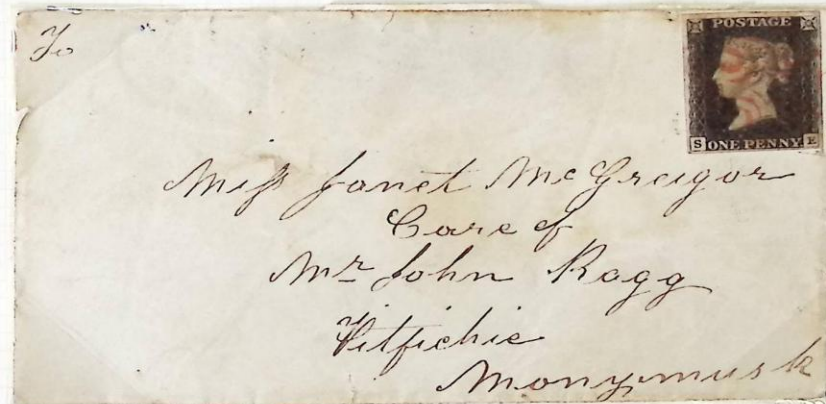 To
POSTAGE
S ONE PENNY. E
Miss Janet McGreigor
Care of
Mr John Ragg
Pitfichie
Monymusk